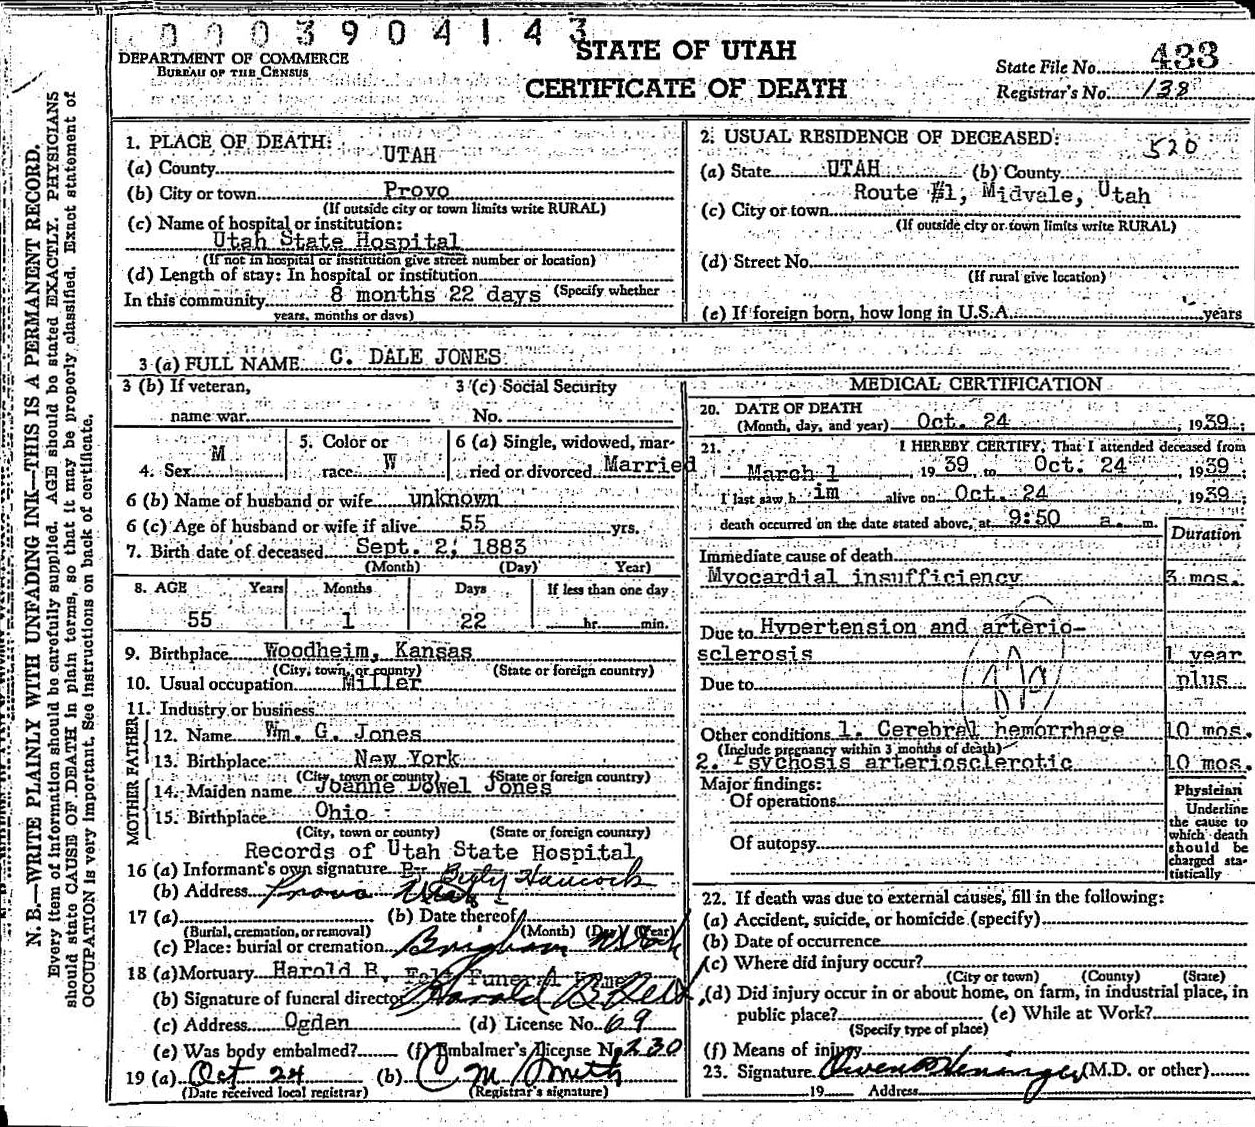 0003904143
DEPARTMENT OF COMMERCE
BUREAU OF THE CENSUS
STATE OF UTAH
CERTIFICATE OF DEATH
State File No. 433
Registrar's No. 138
N. B.—WRITE PLAINLY WITH UNFADING INK—THIS IS A PERMANENT RECORD.
Every item of information should be carefully supplied. AGE should be stated EXACTLY. PHYSICIANS
should state CAUSE OF DEATH in plain terms, so that it may be properly classified. Exact statement of
OCCUPATION is very important. See instructions on back of certificate.
1. PLACE OF DEATH:
(a) County UTAH
(b) City or town Provo
(If outside city or town limits write RURAL)
(c) Name of hospital or institution:
Utah State Hospital
(If not in hospital or institution give street number or location)
(d) Length of stay: In hospital or institution
In this community 8 months 22 days (Specify whether
years, months or days)
2. USUAL RESIDENCE OF DECEASED: 520
(a) State UTAH (b) County
Route #1, Midvale, Utah
(c) City or town
(If outside city or town limits write RURAL)
(d) Street No.
(If rural give location)
(e) If foreign born, how long in U.S.A. years
3 (a) FULL NAME C. DALE JONES
3 (b) If veteran,
name war
3 (c) Social Security
No.
4. Sex M
5. Color or
race W
6 (a) Single, widowed, mar-
ried or divorced Married
6 (b) Name of husband or wife unknown
6 (c) Age of husband or wife if alive 55 yrs.
7. Birth date of deceased Sept. 2, 1883
(Month) (Day) Year)
8. AGE Years Months Days If less than one day
55 1 22 hr. min.
9. Birthplace Woodheim, Kansas
(City, town, or county) (State or foreign country)
10. Usual occupation Miller
11. Industry or business
FATHER
12. Name Wm. G. Jones
13. Birthplace New York
(City, town or county) (State or foreign country)
MOTHER
14. Maiden name Joanne Dowel Jones
15. Birthplace Ohio
(City, town or county) (State or foreign country)
Records of Utah State Hospital
16 (a) Informant's own signature By Hancock
(b) Address Provo Utah
17 (a) (b) Date thereof
(Burial, cremation, or removal) (Month) (Day) (Year)
(c) Place: burial or cremation Brigham Utah
18 (a) Mortuary Harold B. Felt Funeral Home
(b) Signature of funeral director Harold B. Felt
(c) Address Ogden (d) License No. 69
(e) Was body embalmed? (f) Embalmer's License No. 230
19 (a) Oct 24 (b) C M Smith
(Date received local registrar) (Registrar's signature)
MEDICAL CERTIFICATION
20. DATE OF DEATH
(Month, day, and year) Oct. 24, 1939;
21. I HEREBY CERTIFY, That I attended deceased from
March 1, 1939 to Oct. 24, 1939;
I last saw him alive on Oct. 24, 1939;
death occurred on the date stated above, at 9:50 a. m.
Duration
Immediate cause of death
Myocardial insufficiency 3 mos.
Due to Hypertension and arterio-
sclerosis 1 year
Due to plus
Other conditions 1. Cerebral hemorrhage 10 mos.
(Include pregnancy within 3 months of death)
2. Psychosis arteriosclerotic 10 mos.
Major findings:
Of operations
Of autopsy
Physician
Underline
the cause to
which death
should be
charged sta-
tistically
22. If death was due to external causes, fill in the following:
(a) Accident, suicide, or homicide (specify)
(b) Date of occurrence
(c) Where did injury occur?
(City or town) (County) (State)
(d) Did injury occur in or about home, on farm, in industrial place, in
public place? (e) While at Work?
(Specify type of place)
(f) Means of injury
23. Signature Owen P. Heninger (M.D. or other)
19 Address